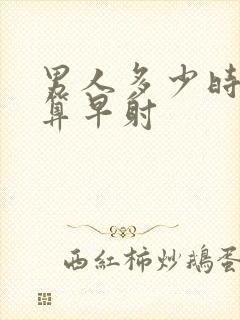 男人多少时
算早射
西紅柿炒鵝蛋